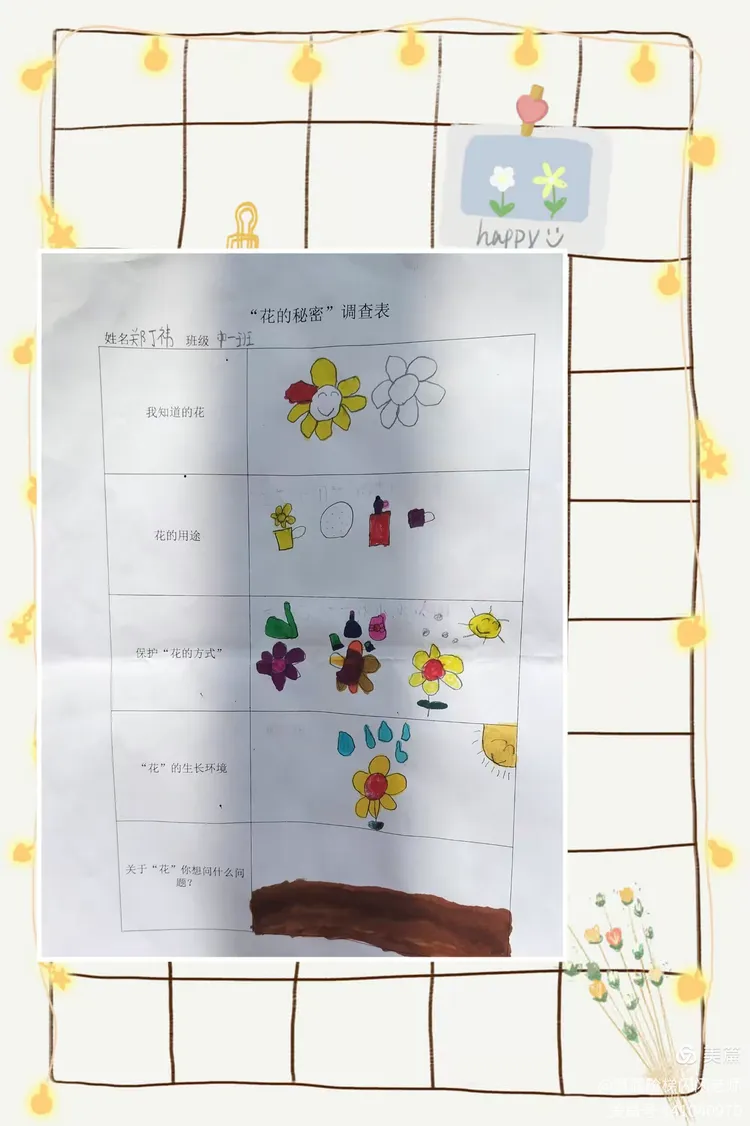 happy
“花的秘密”调查表
姓名 郑丁祎 班级 中一班
我知道的花
花的用途
保护“花的方式”
“花”的生长环境
关于“花”你想问什么问
题？
美篇